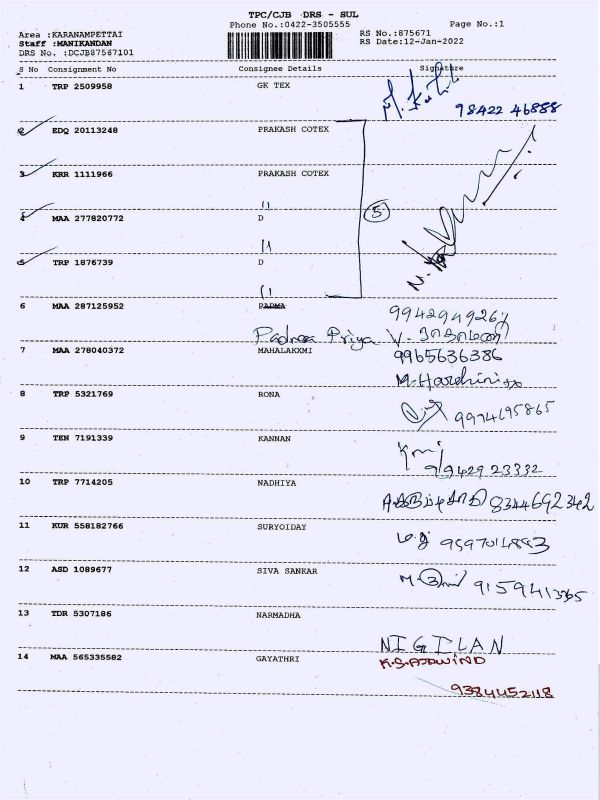 TPC/CJB DRS - SUL
Phone No.:0422-3505555 Page No.:1
Area :KARANAMPETTAI RS No.:875671
Staff :MANIKANDAN RS Date:12-Jan-2022
DRS No. :DCJB87567101
S No Consignment No Consignee Details Signature
1 TRP 2509958 GK TEX
98422 46888
2 EDQ 20113248 PRAKASH COTEX
3 KRR 1111966 PRAKASH COTEX
4 MAA 277820772 D
5
5 TRP 1876739 D
6 MAA 287125952 PADMA
Padma Priya V.
7 MAA 278040372 MAHALAKXMI 9965636386
M. Harshini
8 TRP 5321769 RONA
9974695865
9 TEN 7191339 KANNAN
9942923332
10 TRP 7714205 NADHIYA
8344692342
11 KUR 558182766 SURYOIDAY
12 ASD 1089677 SIVA SANKAR
13 TDR 5307186 NARMADHA
NIGILAN
14 MAA 565335582 GAYATHRI
9384452118